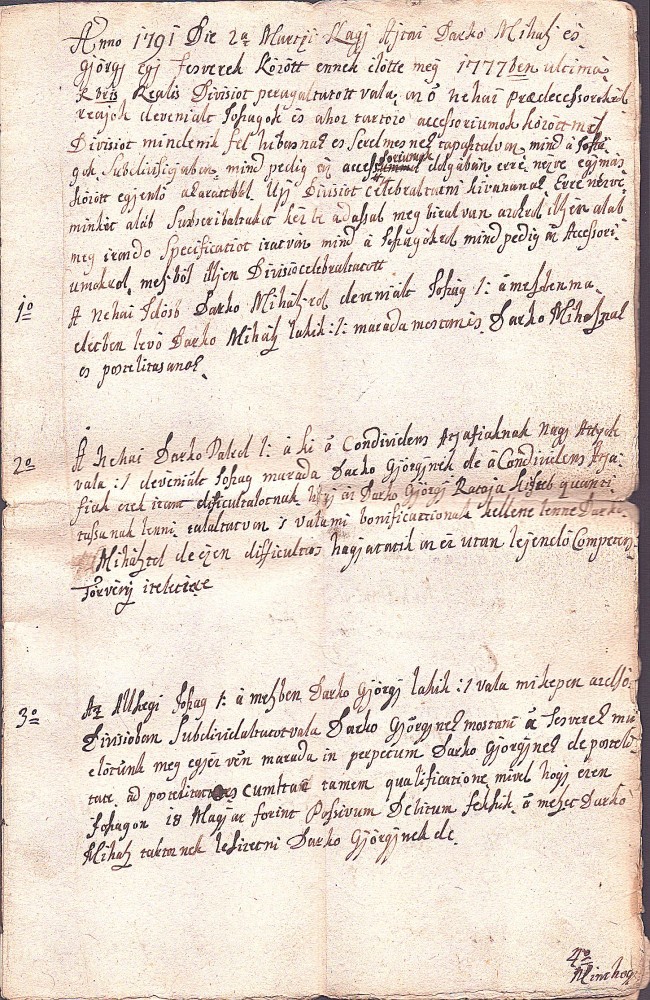 Anno 1791 Die 2a Martzii Nagj Ajtai Darko Mihalj és
Györgj egj Tesverek között ennek elötte meg 1777ben ultima
Xbris Realis Divisiot peragaltattott vala, an ő nehai Prædecessorokrol
reajok devenialt Joszagok és ahoz tartozo accessoriumok között melj
Divisiot mindenik fél hibasnak es serelmesnek tapasztalvan mind a Joszá
gok Subdivisiojaban mind pedig az accessoriumok dolgában erre nezve egjmás
között egjenlö akarattbol Uj Divisiot celebraltatni kivananak Erre nezve
minket aláb Subscribaltakot kez be adassal meg biralvan azokrol illjen alab
meg irando Specificatiot iratván mind a Joszágokrol mind pedig az Accessori
umokrol, melj böl illjen Divisio celebraltatott
1o A Nehai Idösb Darko Mihalj rol devenialt Joszag /: a meljben ma
eletben levö Darko Mihalj lakik :/: marada mostanis Darko Mihaljnal
es posteritasanal.
2o A Nehai Darko Patrol /: a ki a Condividens Atjafiaknak Nagj Attyok
vala :/ devenialt Joszag marada Darko Györgjnek de a Condividens Atja
fiak ezek iránt dificultalotnak hogj az Darko Györgj Rataja kisseb quanti
tasunak lenni talaltatván s valami bonificattionak kellene lenne Darko
Mihaljtol de ezen difficultas hagjatatik an ez utan lejendö Competens
Törvény iteletire
3o Az Allszegi Joszag /: a meljben Darko Györgj lakik :/ vala miképen az elsö
Divisioban Subdividaltatott vala Darko Györgjnek mostani a Tesverek mi
elöttünk meg egjez ven marada in perpetuum Darko Györgjnek de posterit
tate ad posteritates cum hac tamen qualificatione mivel hogj ezen
Joszagon 18 Magjar forint Passivum Debitum fekszik a meljet Darko
Mihalj tartozek lefizetni Darko Györgjnek de
4o
Mint hog